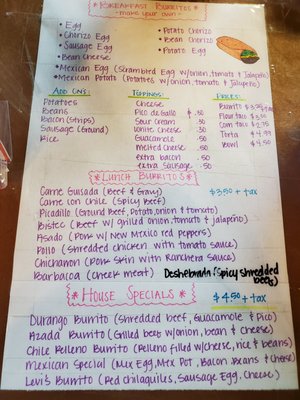 *BREAKFAST BURRITOS*
-make your own-
• Egg
• Potato Chorizo
• Chorizo Egg
• Bean Chorizo
• Sausage Egg
• Potato Egg
• Bean Cheese
• Mexican Egg (Scrambled Egg w/onion, tomato & Jalapeño)
• Mexican Potato (Potatoes w/onion, tomato & Jalapeño)
ADD ONS: TOPPINGS: PRICES:
Potatoes Cheese Burrito
Beans Pico da Gallo .50 Flour taco
Bacon (Strips) Sour Cream .50 Corn Taco $2.75
Sausage (Ground) White Cheese .50 Torta $4.99
Rice Guacamole .50 Bowl $4.50
Melted Cheese .50
extra bacon .50
extra Sausage .50
*LUNCH BURRITOS*
Carne Guisada (Beef & Gravy) $3.50 + tax
Carne con Chile (Spicy Beef)
Picadillo (Ground Beef, Potato, onion & tomato)
Bistec (Beef w/ grilled onion, tomato & jalapeño)
Asado (Pork w/ New Mexico red peppers)
Pollo (Shredded chicken with tomato sauce)
Chicharron (Pork Skin with Ranchera Sauce)
Barbacoa (Cheek meat) Deshebrada (Spicy shredded beef)
*HOUSE SPECIALS* $4.50 + tax
Durango Burrito (Shredded beef, Guacamole & Pico)
Azada Burrito (Grilled beef w/onion, bean & cheese)
Chile Relleno Burrito (Relleno filled w/cheese, rice & beans)
Mexican Special (Mex Egg, Mex Pot, Bacon Beans & Cheese)
Levi's Burrito (Red Chilaquiles, Sausage Egg, Cheese)